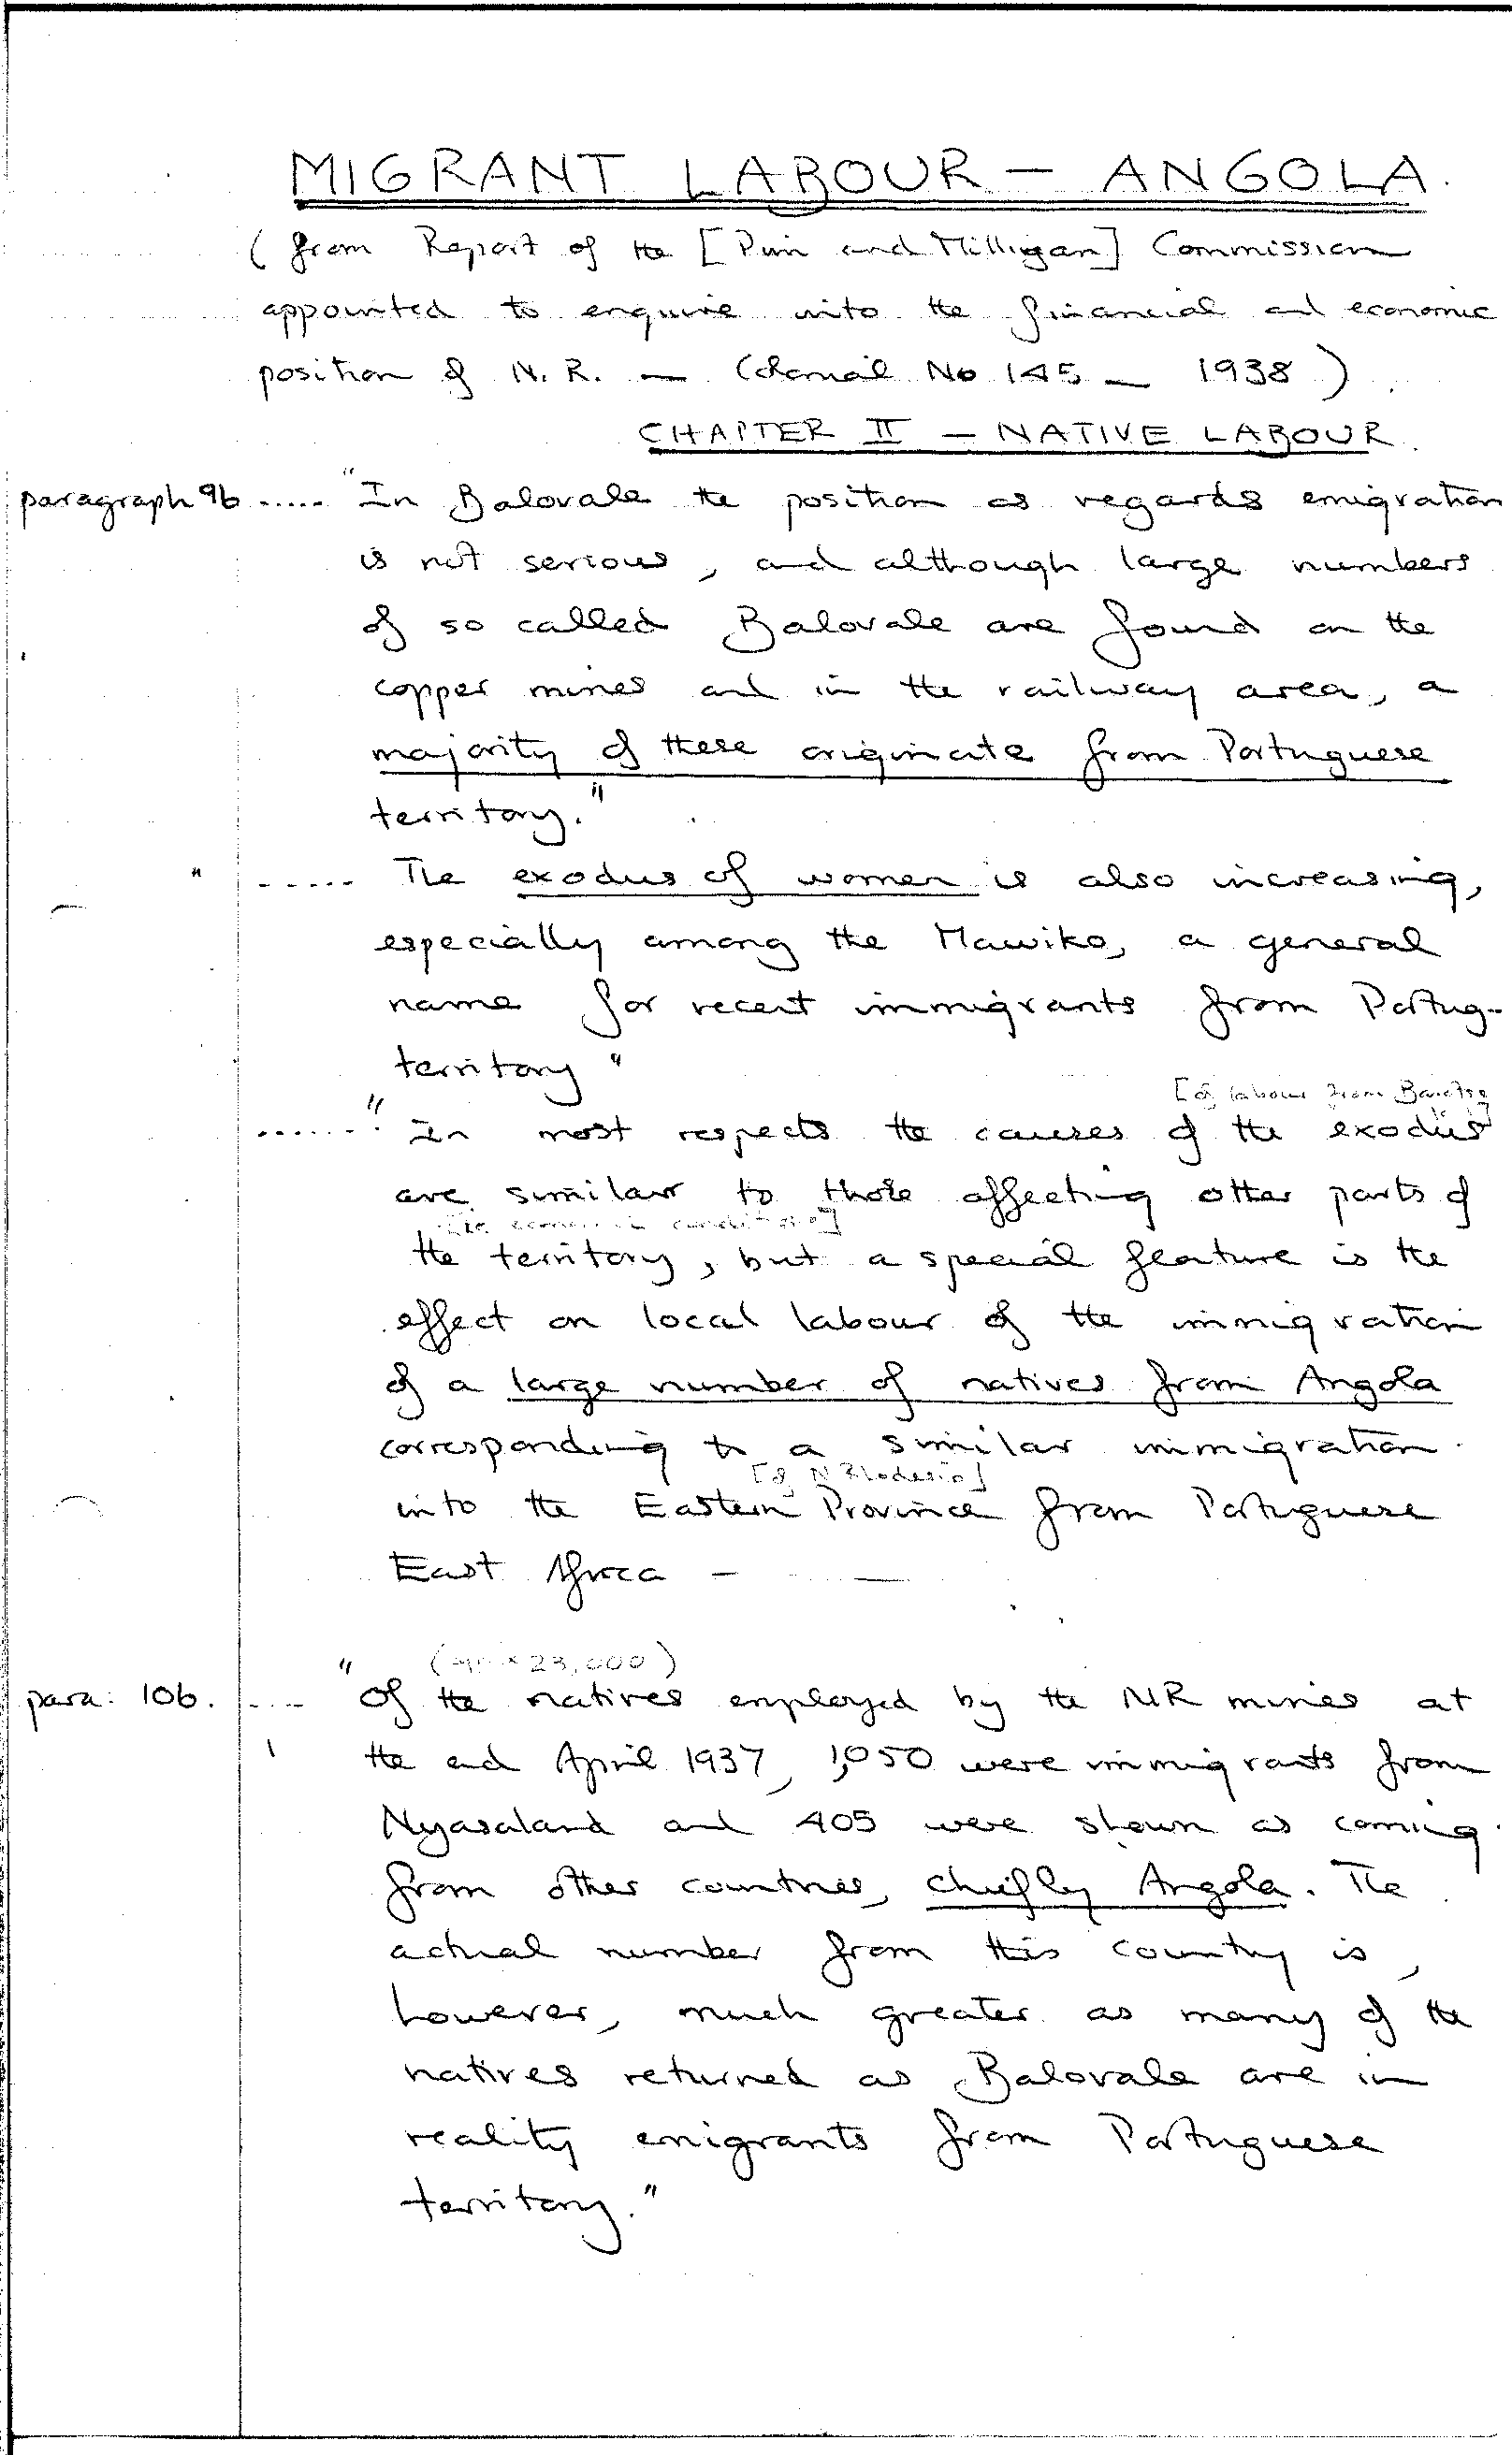 MIGRANT LABOUR - ANGOLA.
(from Report of the [Pim and Milligan] Commission
appointed to enquire into the financial and economic
position of N.R. — Colonial No 145 — 1938)
CHAPTER II - NATIVE LABOUR.
paragraph 96 ..... "In Balovale the position as regards emigration
is not serious, and although large numbers
of so called Balovale are found on the
copper mines and in the railway area, a
majority of these originate from Portuguese
territory."
" ..... The exodus of women is also increasing,
especially among the Mawiko, a general
name for recent immigrants from Portug-
territory "
[of labour from Barotse
...... " In most respects the causes of the exodus
are similar to those affecting other parts of
[ie economic conditions]
the territory, but a special feature is the
effect on local labour of the immigration
of a large number of natives from Angola
corresponding to a similar immigration
[of N Rhodesia]
into the Eastern Province from Portuguese
East Africa -
23,000)
para: 106. .... "Of the natives employed by the NR mines at
the end April 1937, 1,050 were immigrants from
Nyasaland and 405 were shown as coming
from other countries, chiefly Angola. The
actual number from this country is,
however, much greater as many of the
natives returned as Balovale are in
reality emigrants from Portuguese
territory."